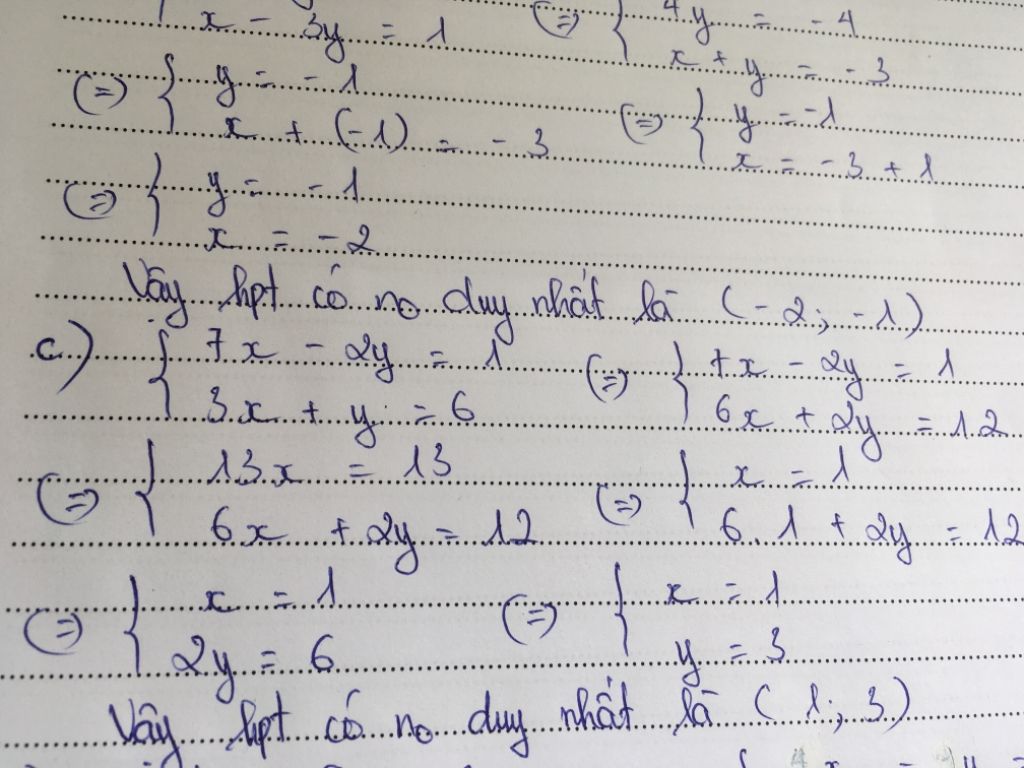 x - 3y = 1 (=) { 4y = -4
x + y = -3
(=) { y = -1
x + (-1) = -3 (=) { y = -1
x = -3 + 1
(=) { y = -1
x = -2
Vậy hpt có no duy nhất là (-2; -1)
c) { 7x - 2y = 1 (=) { 7x - 2y = 1
3x + y = 6 6x + 2y = 12
(=) { 13x = 13 (=) { x = 1
6x + 2y = 12 6.1 + 2y = 12
(=) { x = 1 (=) { x = 1
2y = 6 y = 3
Vậy hpt có no duy nhất là (1; 3)